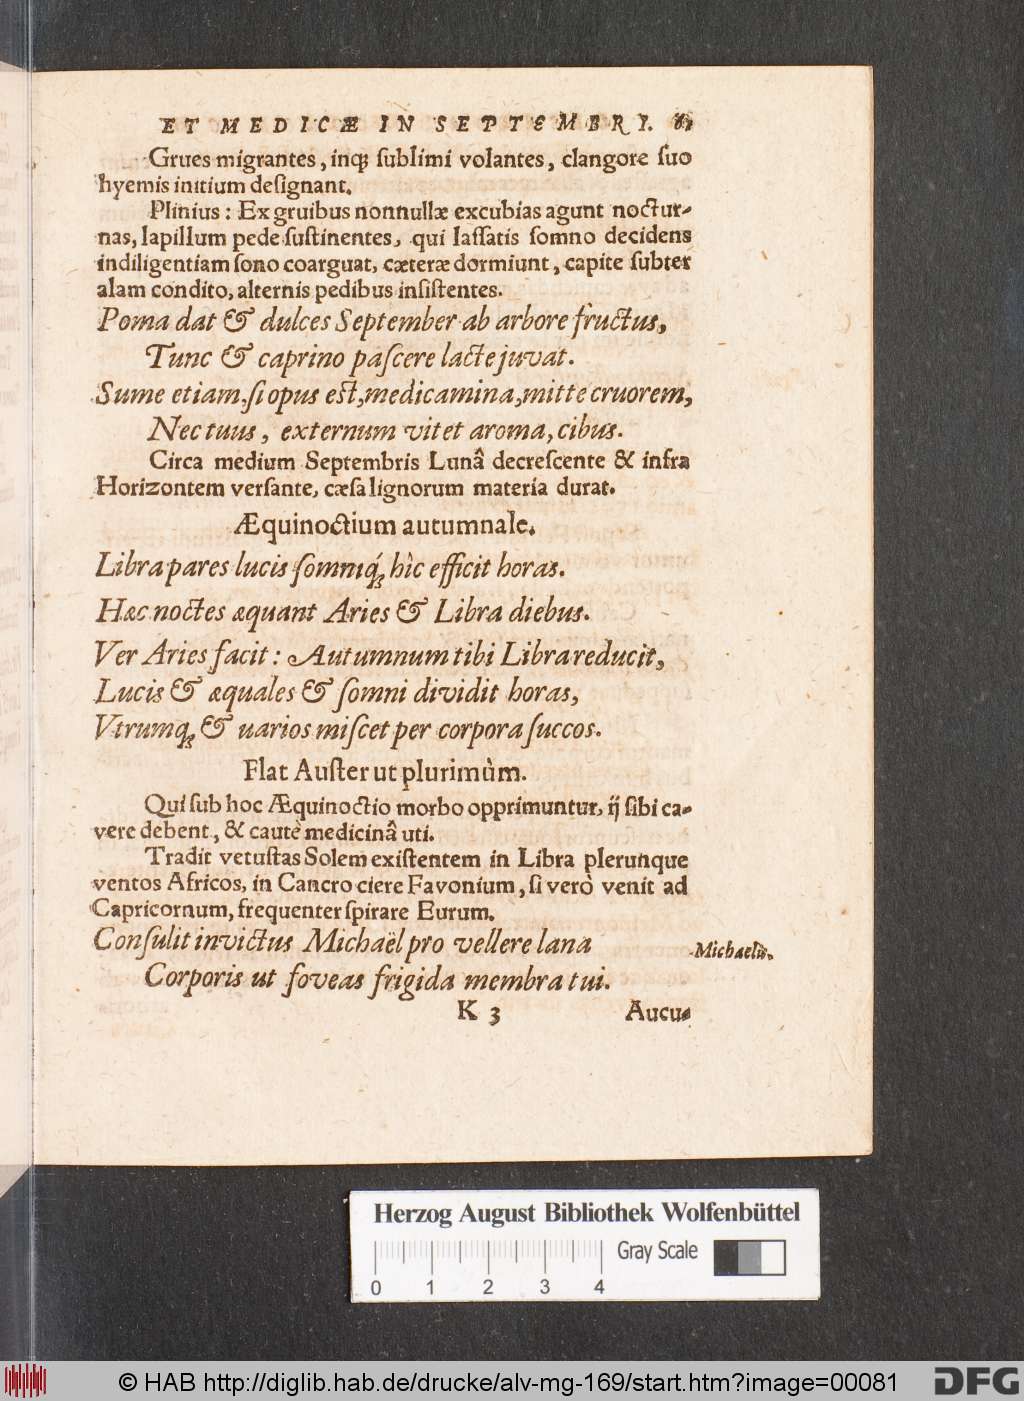 ET MEDICÆ IN SEPTEMBRI.
Grues migrantes, inq; ſublimi volantes, clangore ſuo
hyemis initium deſignant.
Plinius: Ex gruibus nonnullæ excubias agunt noctur-
nas, lapillum pede ſuſtinentes, qui laſſatis ſomno decidens
indiligentiam ſono coarguat, cæteræ dormiunt, capite ſubter
alam condito, alternis pedibus inſiſtentes.
Poma dat & dulces September ab arbore fructus,
Tunc & caprino paſcere lacte juvat.
Sume etiam, ſi opus eſt, medicamina, mitte cruorem,
Nec tuus, externum vitet aroma, cibus.
Circa medium Septembris Lunâ decreſcente & infra
Horizontem verſante, cæſa lignorum materia durat.
Æquinoctium autumnale.
Libra pares lucis ſomniq́; hìc efficit horas.
Hæc noctes æquant Aries & Libra diebus.
Ver Aries facit: Autumnum tibi Libra reducit,
Lucis & æquales & ſomni dividit horas,
Vtrumq; & uarios miſcet per corpora ſuccos.
Flat Auſter ut plurimùm.
Qui ſub hoc Æquinoctio morbo opprimuntur, ij ſibi ca-
vere debent, & cautè medicinâ uti.
Tradit vetuſtas Solem exiſtentem in Libra plerunque
ventos Africos, in Cancro ciere Favonium, ſi verò venit ad
Capricornum, frequenter ſpirare Eurum.
Conſulit invictus Michaël pro vellere lana
Michaelis.
Corporis ut foveas frigida membra tui.
K 3 Aucu-
Herzog August Bibliothek Wolfenbüttel
Gray Scale
0 1 2 3 4
© HAB http://diglib.hab.de/drucke/alv-mg-169/start.htm?image=00081
DFG